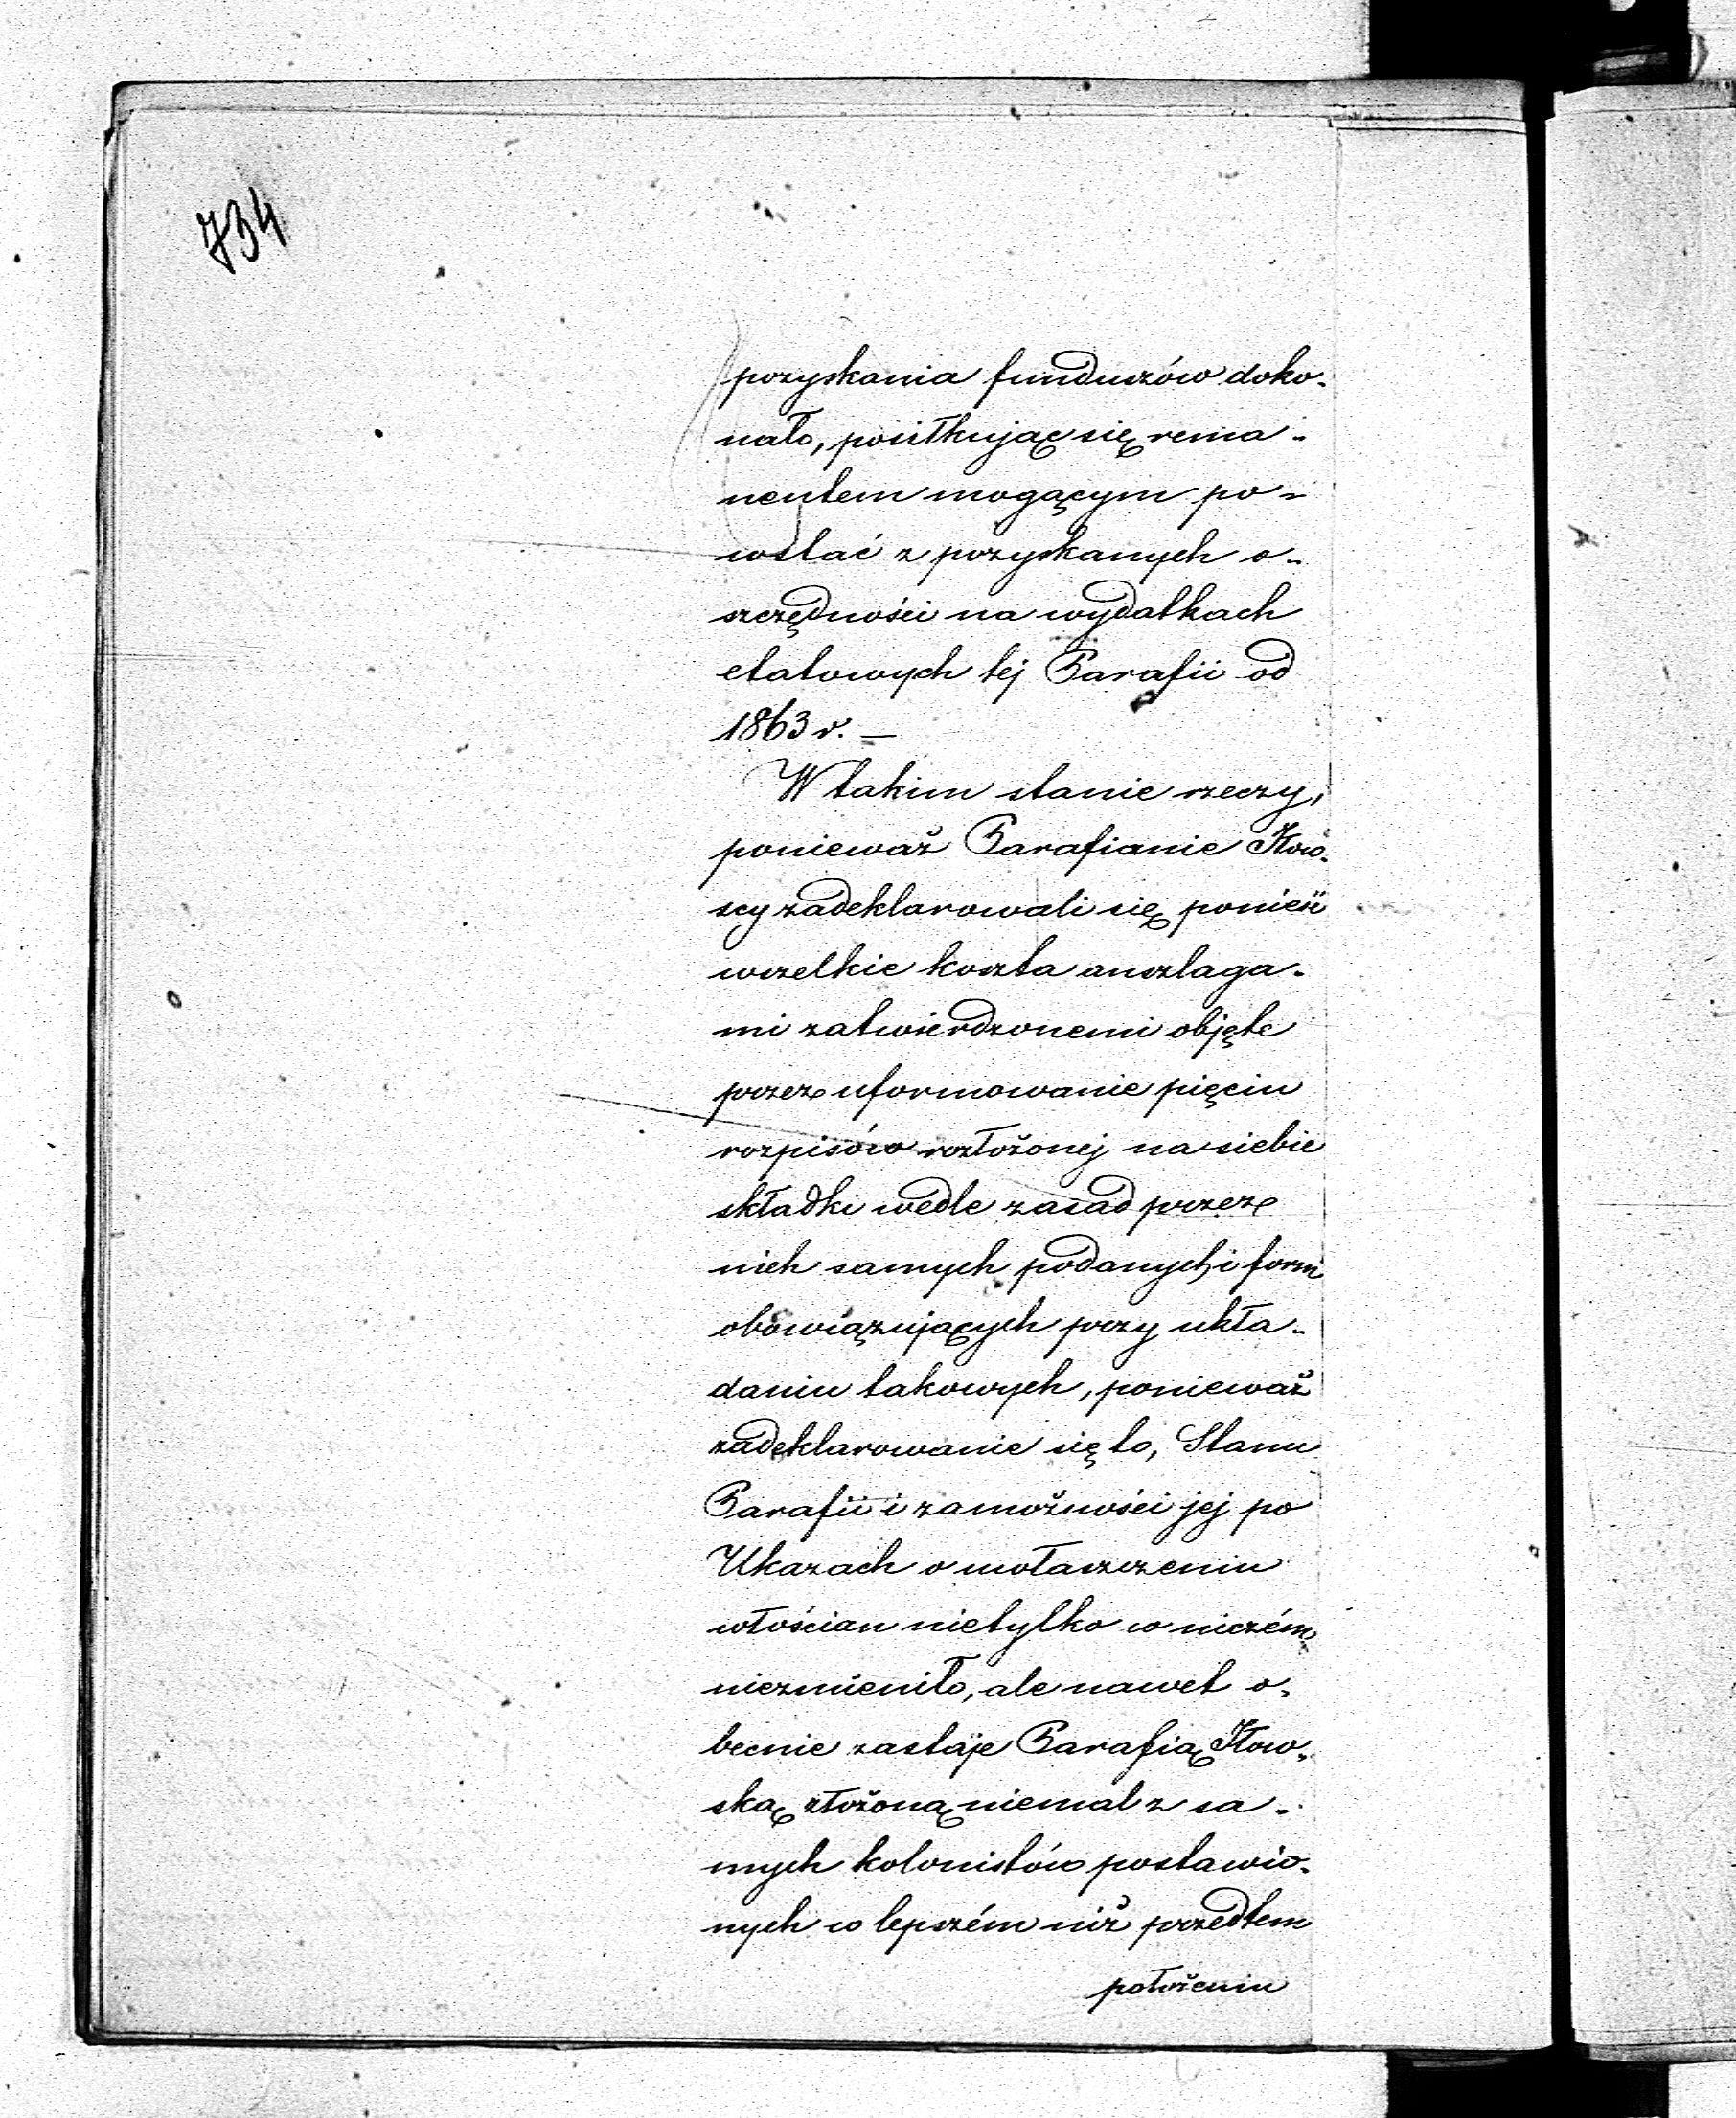 734
pozyskania funduszów doko-
nało, posiłkując się rema-
nentem mogącym po-
wstać z pozyskanych o-
szczędności na wydatkach
etatowych tej Parafii od
1863 r. —
W takim stanie rzeczy,
ponieważ Parafianie Iłow-
scy zadeklarowali się ponieść
wszelkie koszta anszlaga-
mi zatwierdzonemi objęte
przez uformowanie pięciu
rozpisów rozłożonej na siebie
składki wedle zasad przez
nich samych podanych i form
obowiązujących przy ukła-
daniu takowych, ponieważ
zadeklarowanie się to, Stanu
Parafii i zamożności jej po
Ukazach o uwłaszczeniu
włościan nietylko w niczém
niezmieniło, ale nawet o-
becnie zastaje Parafią Iłow-
ską złożoną niemal z sa-
mych kolonistów postawio-
nych w lepszém niż przedtem
położeniu